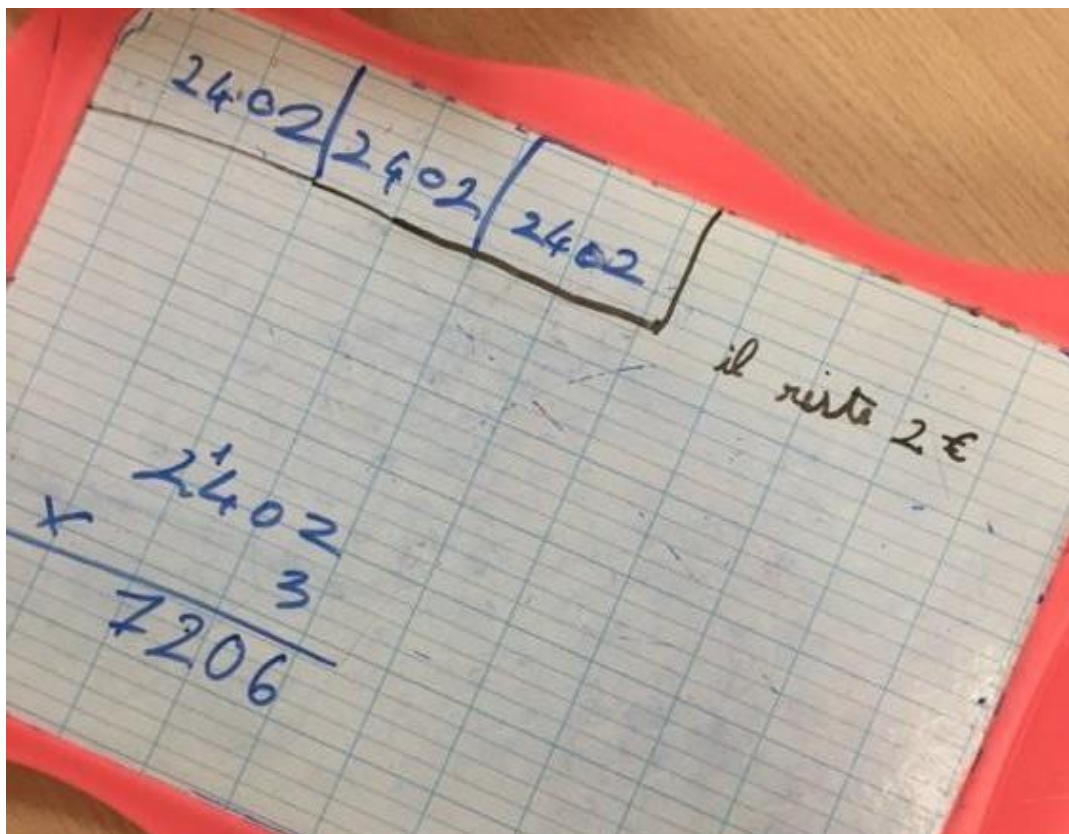 2402 2402 2402
il reste 2 €
1
2402
x 3
7206